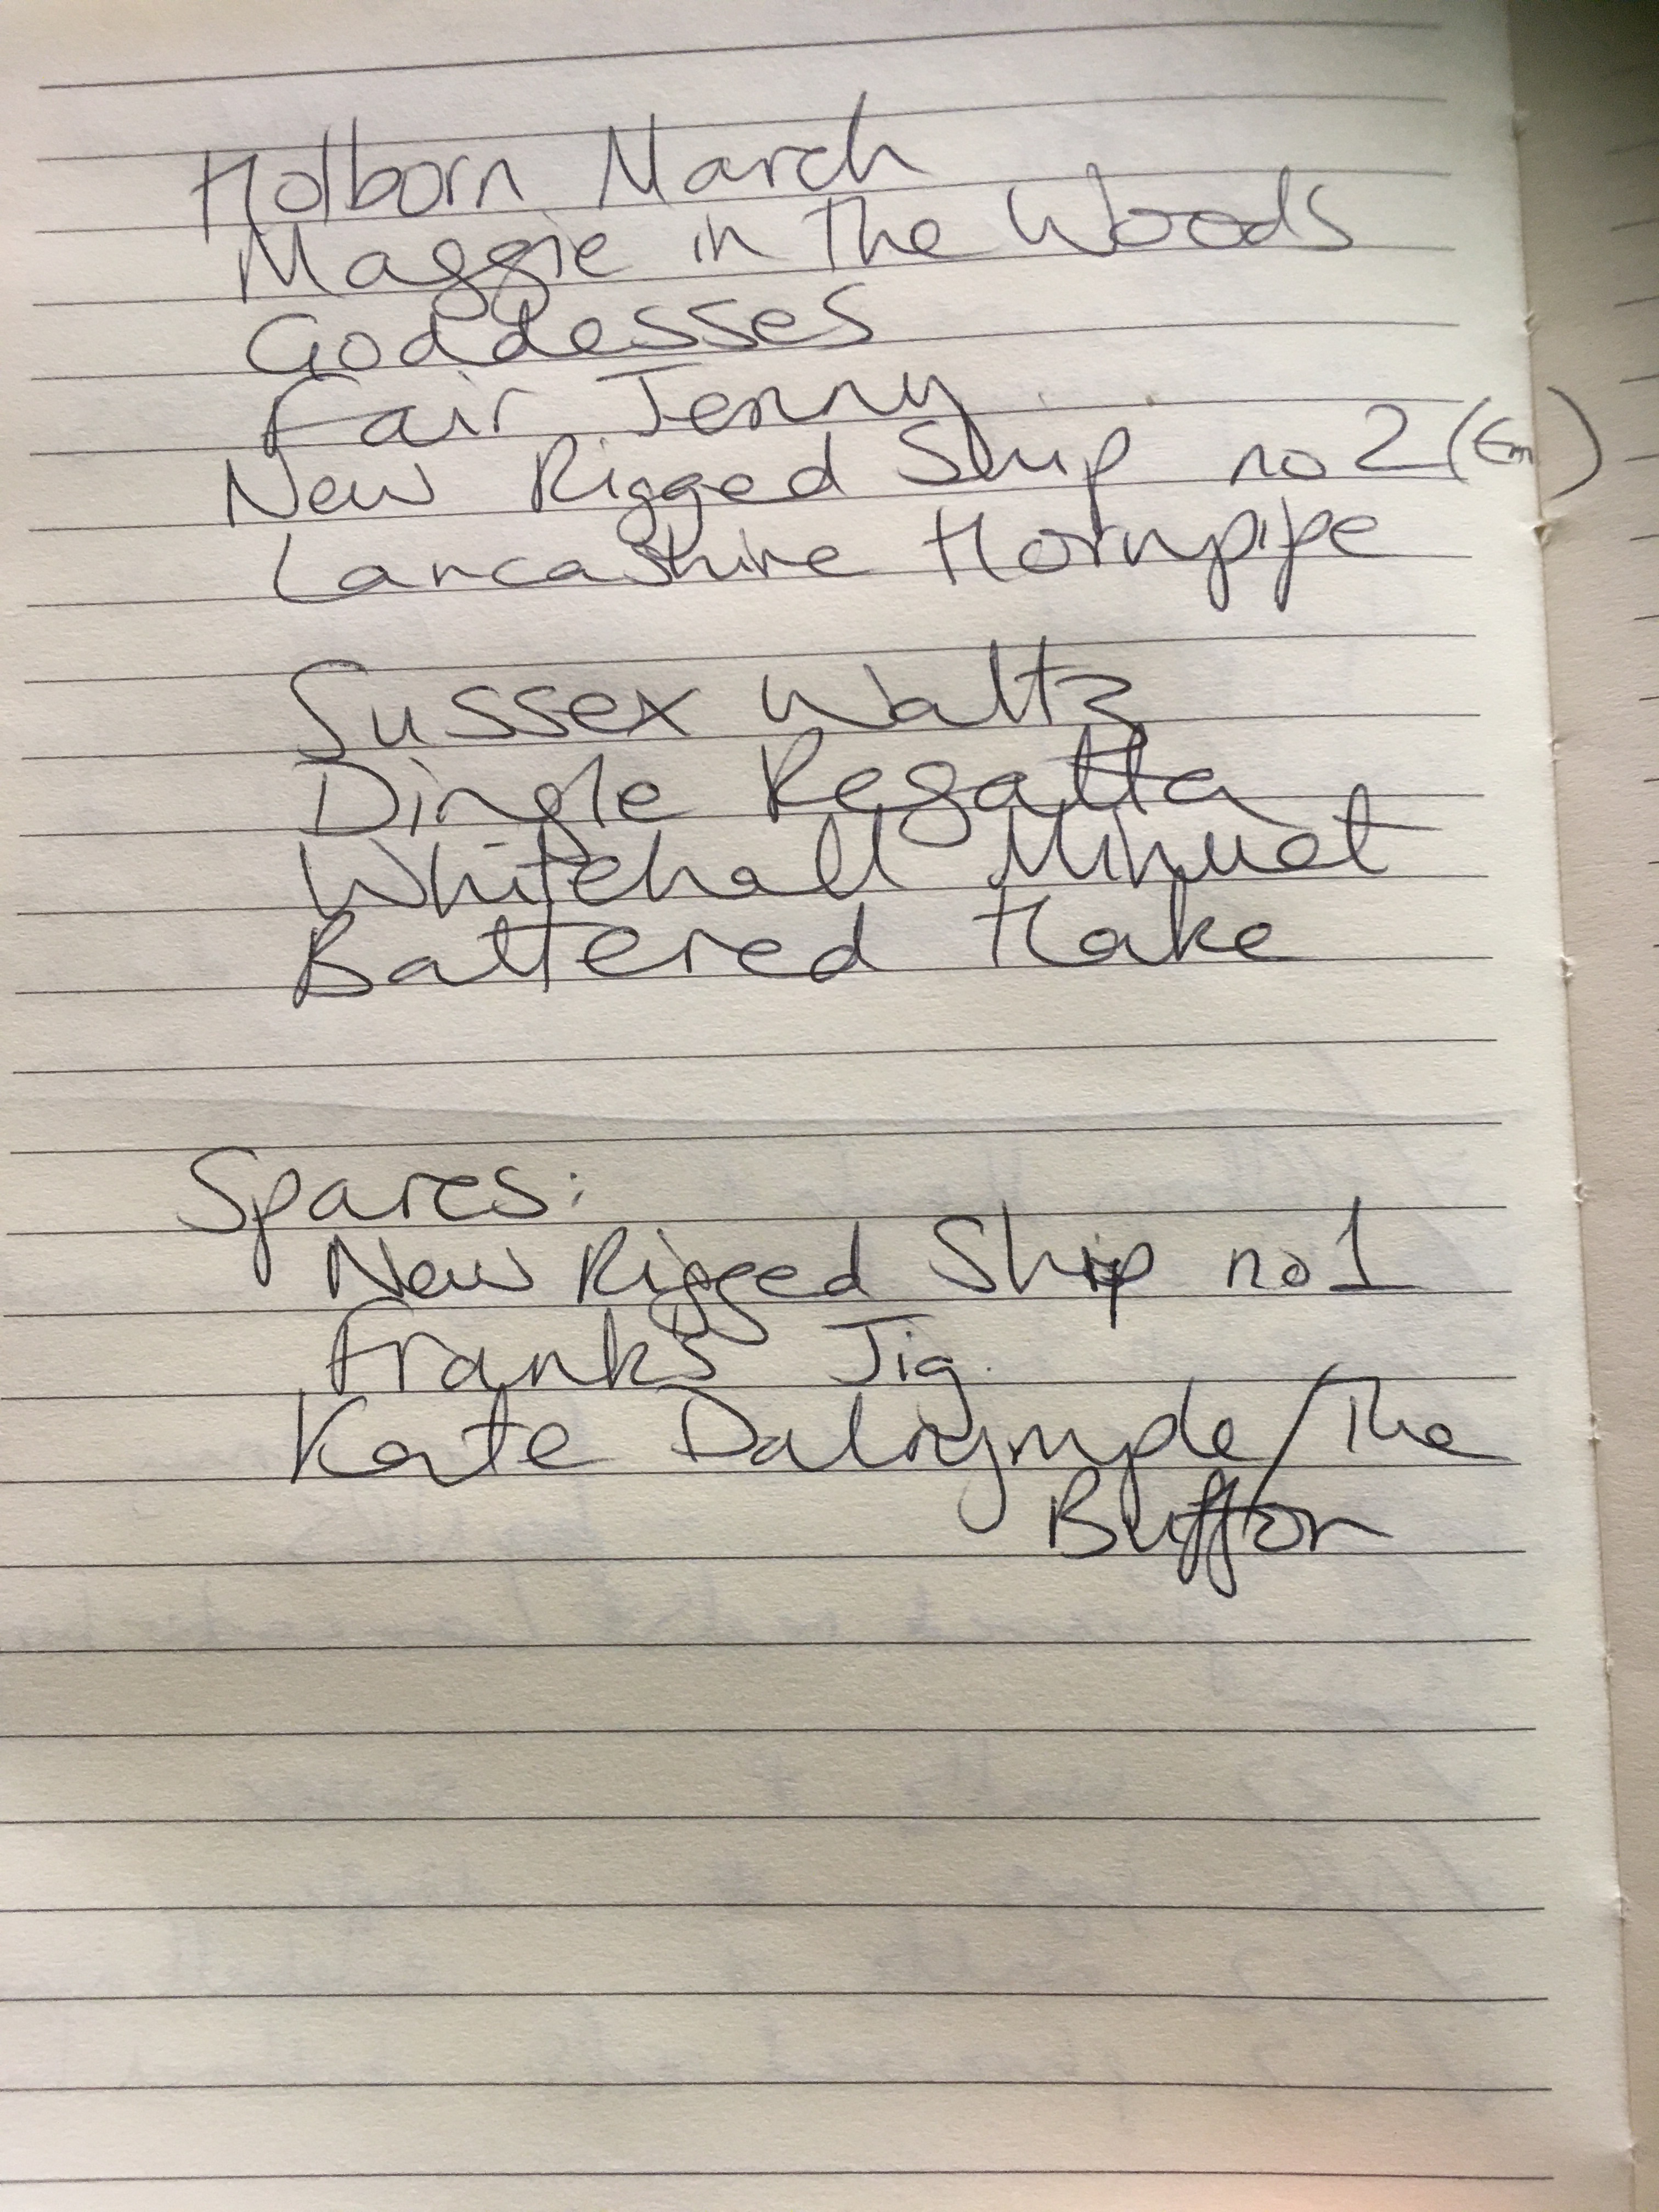 Holborn March
Maggie in The Woods
Goddesses
Fair Jenny
New Rigged Ship no 2 (Em)
Lancashire Hornpipe
Sussex Waltz
Dingle Regatta
Whitehall Minuet
Battered Hake
Spares:
New Rigged Ship no 1
Frank's Jig.
Kate Dalrymple / The
Buffon